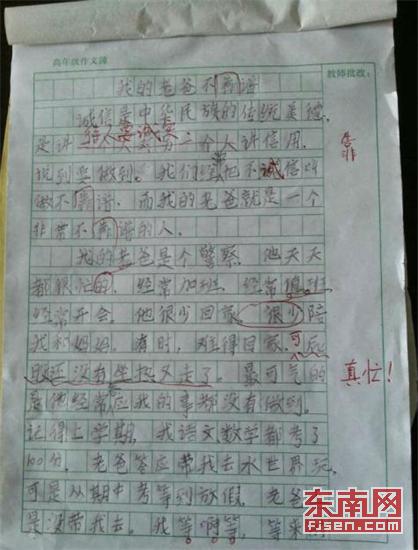 高年级作文簿
教师批改：
我的老爸不靠谱
诚信是中华民族的传统美德，
是讲 给人要诚实 二个人讲信用，
说到要做到。我们经常把不诚信叫
做不靠谱。而我的老爸就是一个
非常不靠谱的人。
靠
我的老爸是个警察，他天天
都很忙的，经常加班，经常值班
经常开会，他很少回家，很少陪
我和妈妈。有时，难得回家，可屁
股还没有坐热又走了。最可气的
真忙！
是他经常应我的事都没有做到。
记得上学期，我语文数学都考了
100分，老爸答应带我去水世界玩，
可是从期中考等到放假，老爸
是没带我去。我等啊等，等来
东南网
FJSEN.COM